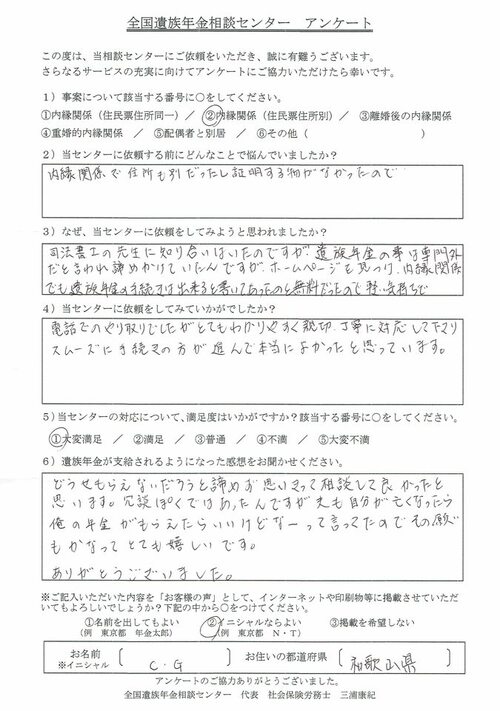 全国遺族年金相談センター アンケート
この度は、当相談センターにご依頼をいただき、誠に有難うございます。
さらなるサービスの充実に向けてアンケートにご協力いただけたら幸いです。
1）事案について該当する番号に○をしてください。
①内縁関係（住民票住所同一） ／ ②内縁関係（住民票住所別） ／ ③離婚後の内縁関係
④重婚的内縁関係 ／ ⑤配偶者と別居 ／ ⑥その他（ ）
2）当センターに依頼する前にどんなことで悩んでいましたか？
内縁関係で住所も別だったし証明する物がなかったので
3）なぜ、当センターに依頼をしてみようと思われましたか？
司法書士の先生に知り合いはいたのですが、遺族年金の事は専門外
だと言われ諦めかけていたんですが、ホームページを見つけ、内縁関係
でも遺族年金の手続きは出来ると書いてあったのと無料だったので軽い気持ちで
4）当センターに依頼をしてみていかがでしたか？
電話でのやり取りでしたがとてもわかりやすく親切、丁寧に対応して下さり
スムーズに手続きの方が進んで本当によかったと思っています。
5）当センターの対応について、満足度はいかがですか？該当する番号に○をしてください。
①大変満足 ／ ②満足 ／ ③普通 ／ ④不満 ／ ⑤大変不満
6）遺族年金が支給されるようになった感想をお聞かせください。
どうせもらえないだろうと諦めず思いきって相談して良かったと
思います。冗談ぽくではあったんですが夫も自分が亡くなったら
俺の年金がもらえたらいいけどなーって言ってたのでその願い
もかなってとても嬉しいです。
ありがとうございました。
※ご記入いただいた内容を「お客様の声」として、インターネットや印刷物等に掲載させていただ
いてもよろしいでしょうか？下記の中から○をつけてください。
①名前を出してもよい ②イニシャルならよい ③掲載を希望しない
（例 東京都 年金太郎） （例 東京都 N・T）
お名前 ※イニシャル 〔 C．G 〕 お住いの都道府県 〔 和歌山県 〕
アンケートのご協力ありがとうございました。
全国遺族年金相談センター 代表 社会保険労務士 三浦康紀